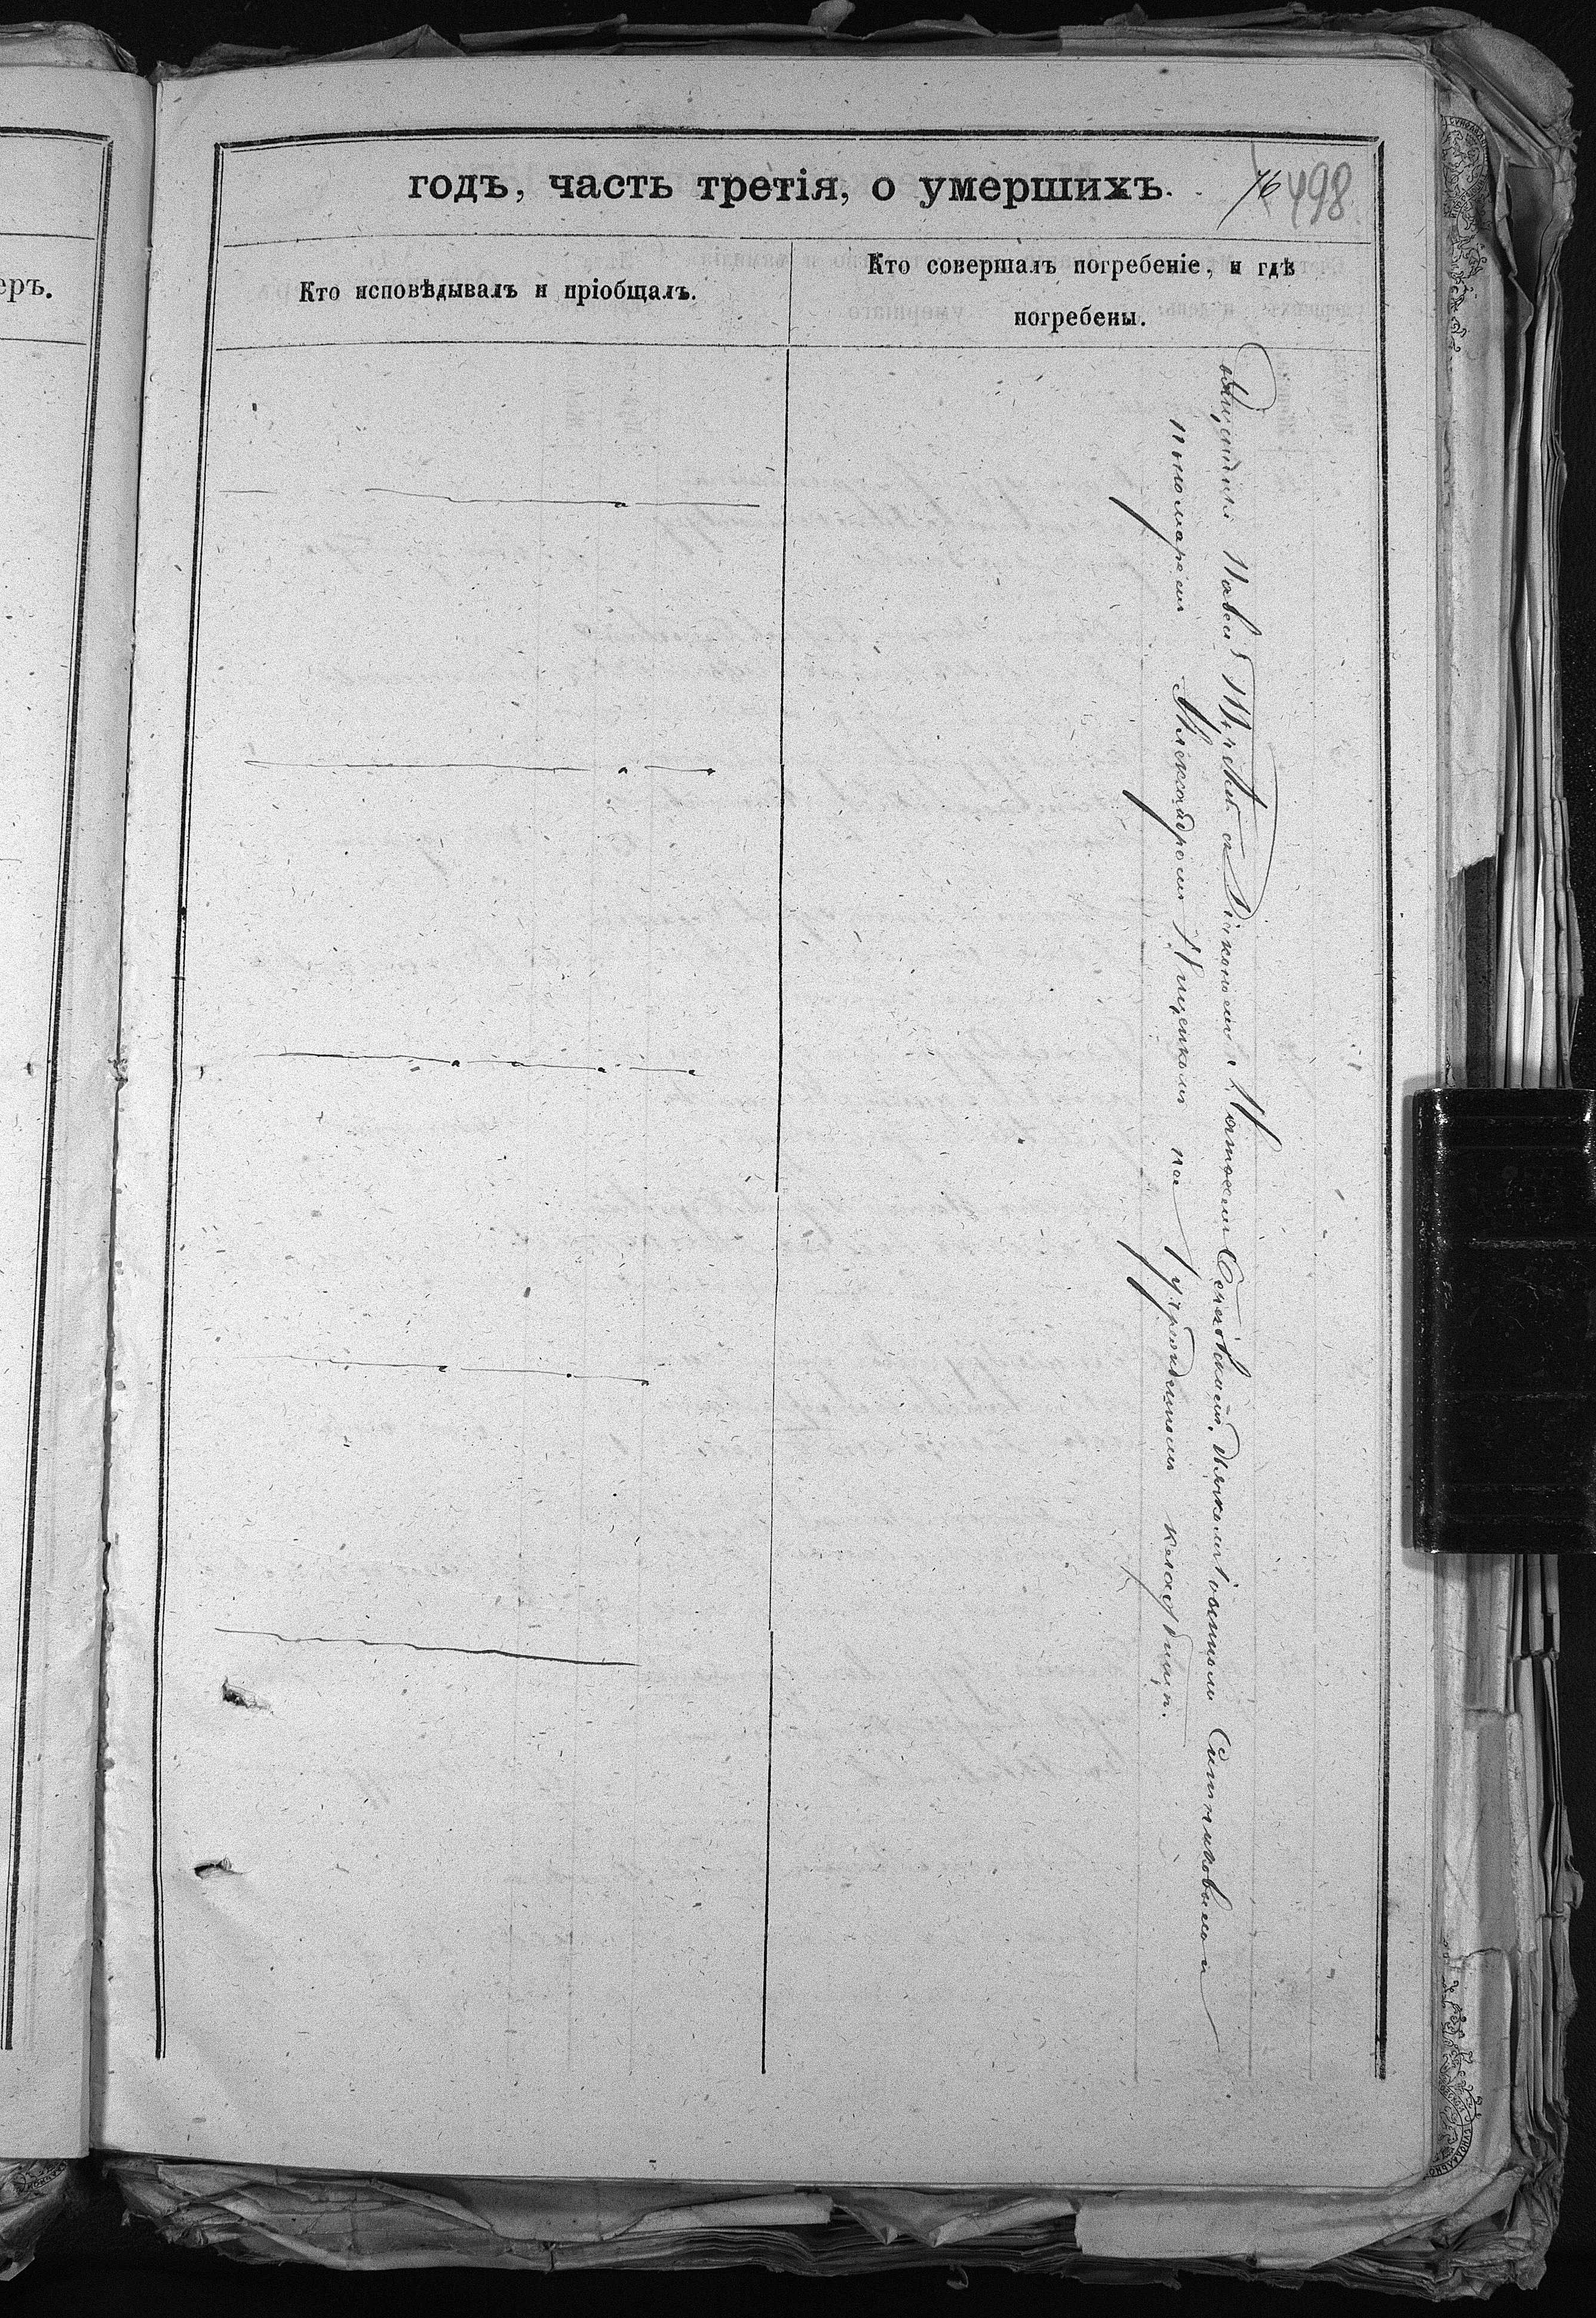 еръ.
годъ, часть третія, о умершихъ.
76 498
Кто исповѣдывалъ и пріобщалъ.
Кто совершалъ погребеніе, и гдѣ
погребены.
Священникъ Павелъ съ Діакономъ Дьячкомъ Іоанномъ Ситниковымъ и
пономаремъ Александромъ Ищенкомъ на учрежденномъ кладбищѣ.